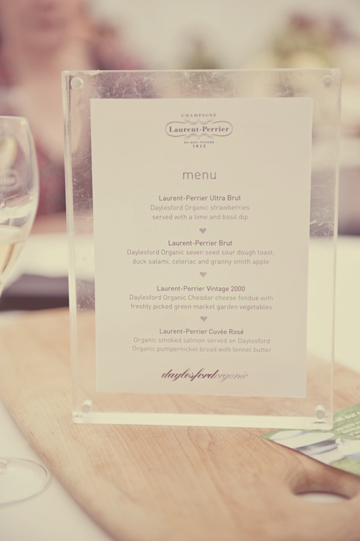 CHAMPAGNE
Laurent-Perrier
1812
menu
Laurent-Perrier Ultra Brut
Daylesford Organic strawberries
served with a lime and basil dip
Laurent-Perrier Brut
Daylesford Organic seven seed sour dough toast,
duck salami, celeriac and granny smith apple
Laurent-Perrier Vintage 2000
Daylesford Organic Cheddar cheese fondue with
freshly picked green market garden vegetables
Laurent-Perrier Cuvée Rosé
Organic smoked salmon served on Daylesford
Organic pumpernickel bread with fennel butter
daylesfordorganic